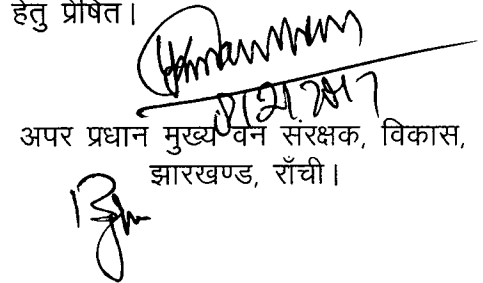 हेतु प्रेषित।
अपर प्रधान मुख्य वन संरक्षक, विकास,
झारखण्ड, राँची।